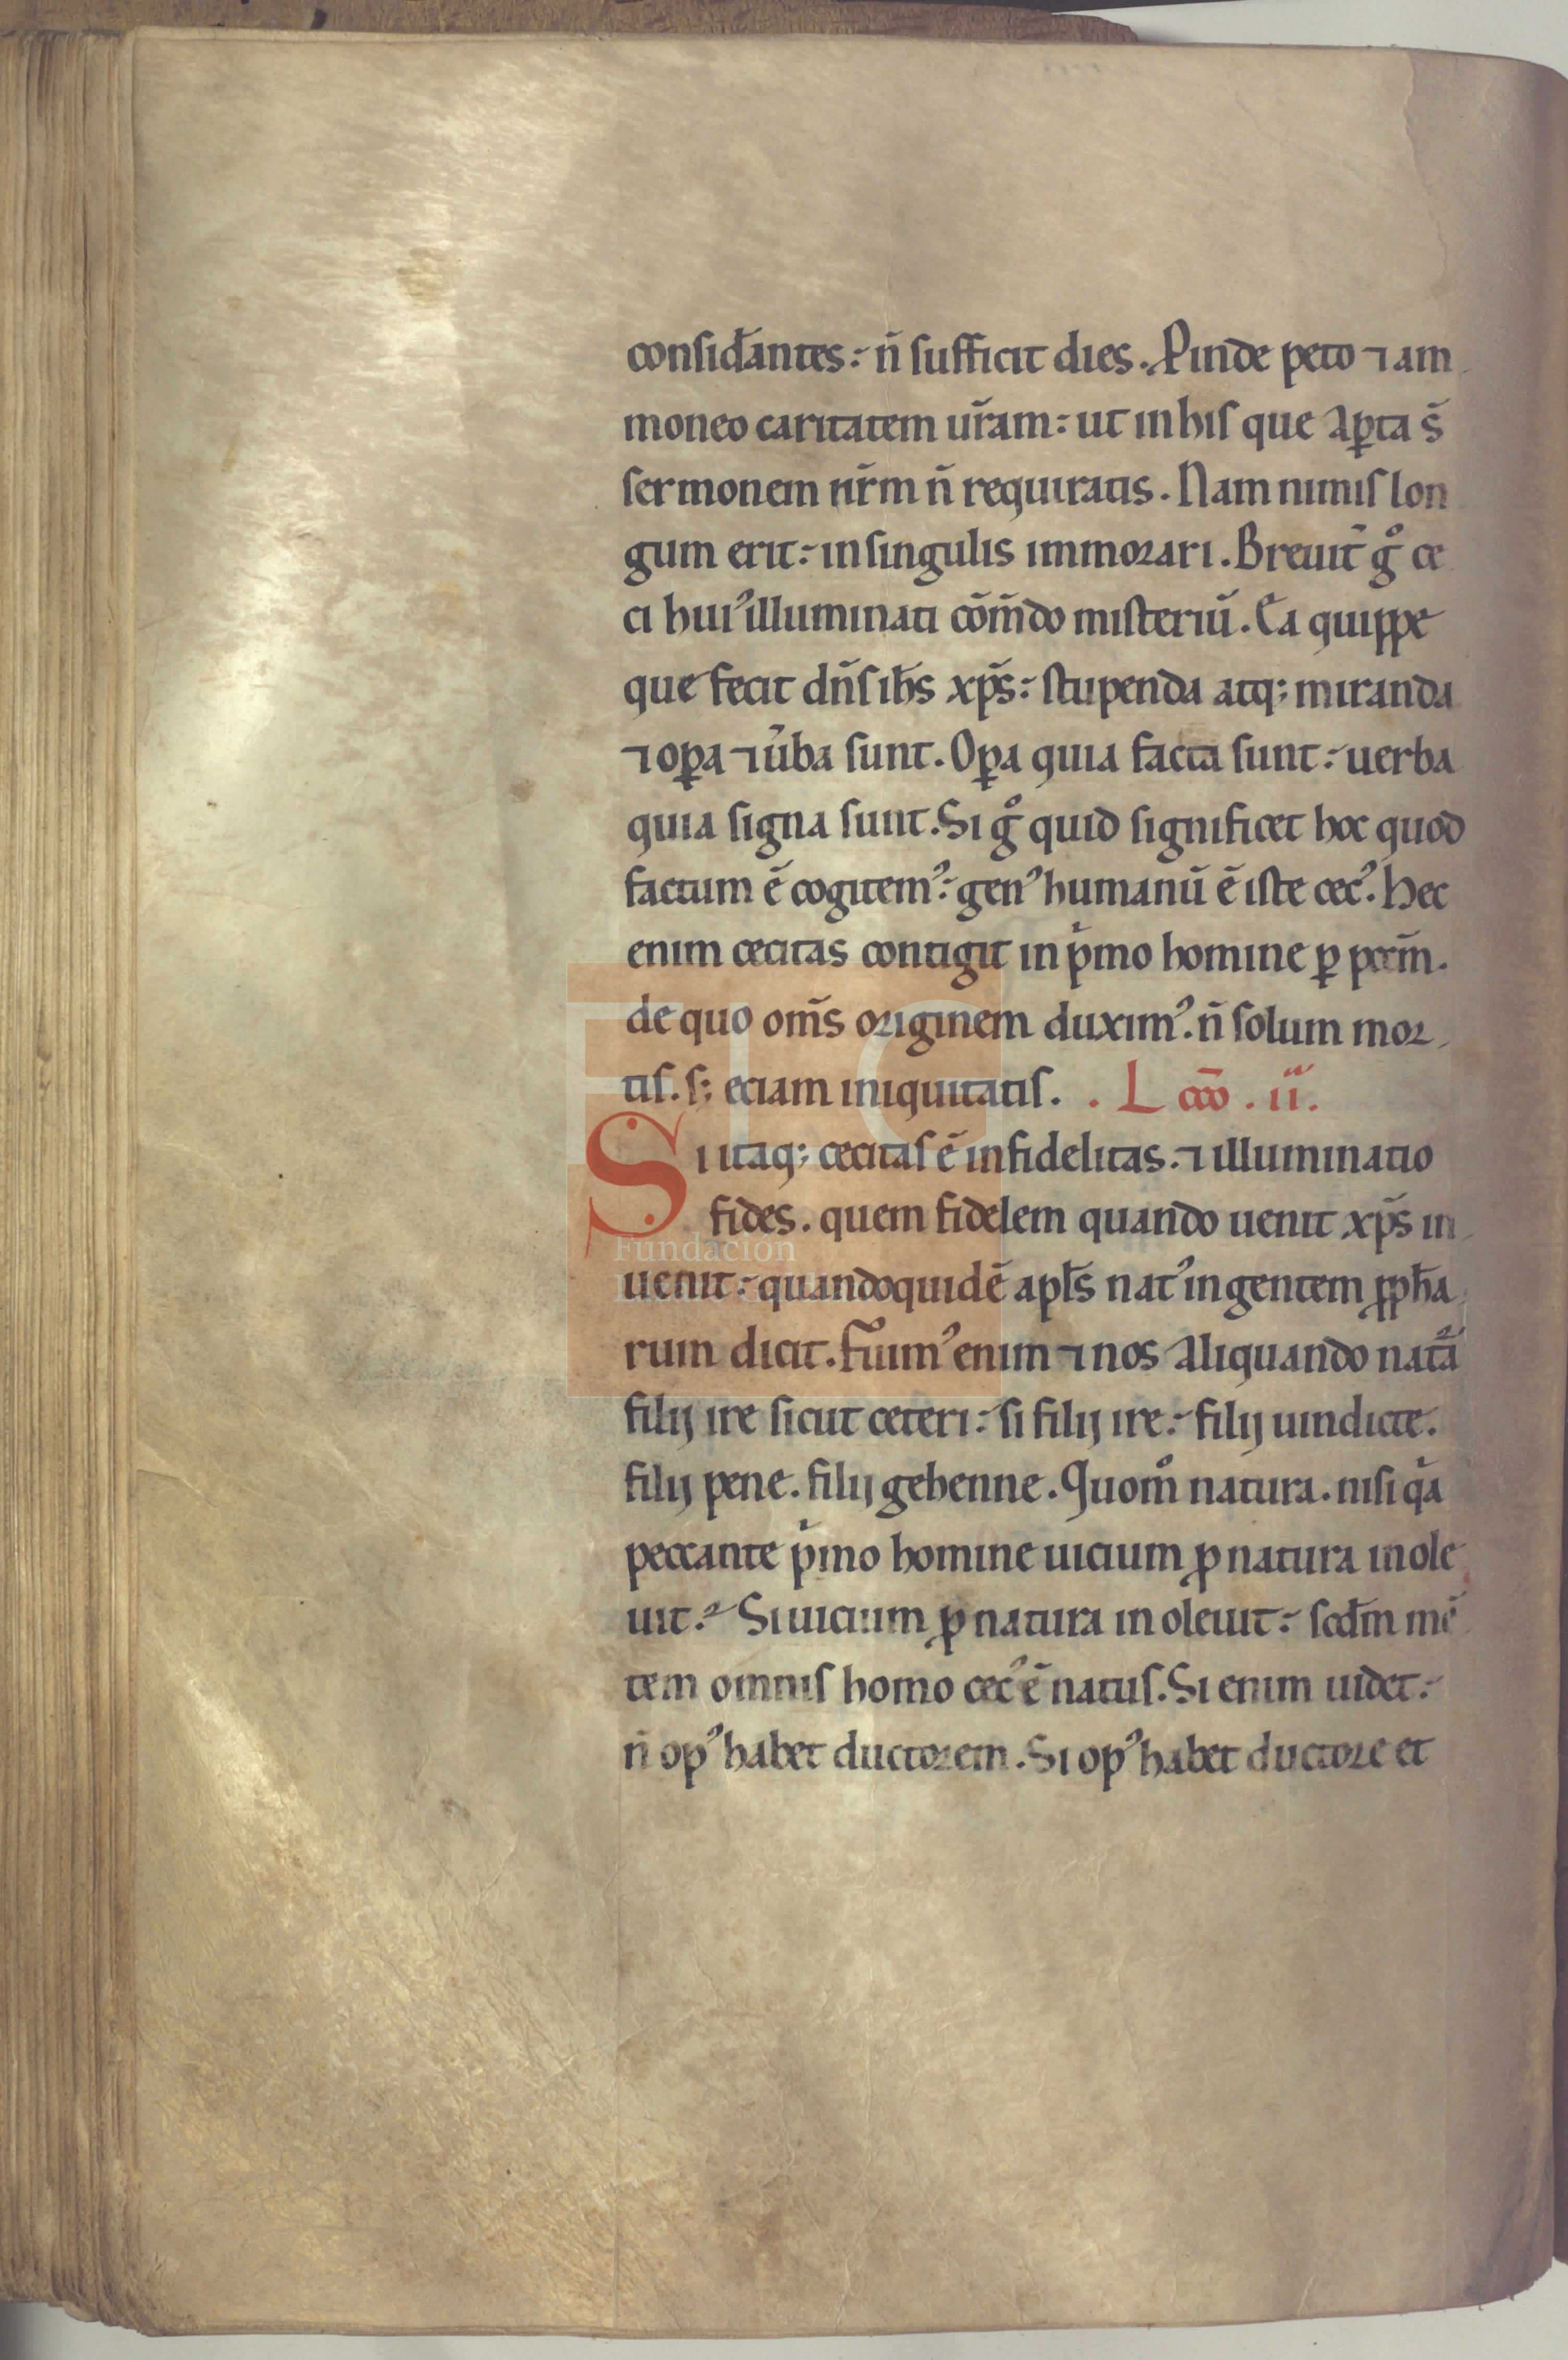 consid̄antes : n̄ sufficit dies. Pinde peto ⁊ am
moneo caritatem ur̄am : ut in his que aꝑta s̄
sermonem nr̄m n̄ requiratis. Nam nimis lon
gum erit : in singulis immorari. Breuit̄ gͦ ce
ci huiꝰ illuminati cōm̄do misteriū. Ea quippe
que fecit dn̄s ih̄s xp̄s : stupenda atq; miranda
⁊ oꝑa ⁊ u̓ba sunt. Oꝑa quia facta sunt : uerba
quia signa sunt. Si gͦ quid significet hoc quod
factum ē cogitemꝰ : genꝰ humanū ē iste cecꝰ. Hec
enim cecitas contigit in pͥmo homine ꝑ pccm̄.
de quo om̄s originem duximꝰ. n̄ solum mor
tis. s; eciam iniquitatis. . L cc̄o . ii.
Si itaq; cecitas ē infidelitas. ⁊ illuminatio
fides. quem fidelem quando uenit xp̄s in
uenit : quandoquidē apl̄s natꝰ in gentem ꝓph̄a
rum dicit. Fuimꝰ enim ⁊ nos aliquando nat̄a
filij ire sicut ceteri : si filij ire : filij uindicte.
filij pene. filij gehenne. Quomͦ natura. nisi qͥa
peccante pͥmo homine uicium ꝓ natura inole
uit. Si uicium ꝓ natura inoleuit : scd̄m mē
tem omnis homo cecꝰ ē natus. Si enim uidet :
n̄ opꝰ habet ductorem. Si opꝰ habet ductore et
Fundación